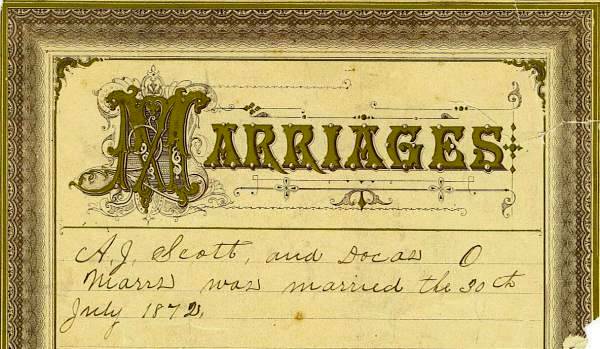 MARRIAGES
A. J. Scott, and Docas O
Marrs was married the 30th
July 1872.